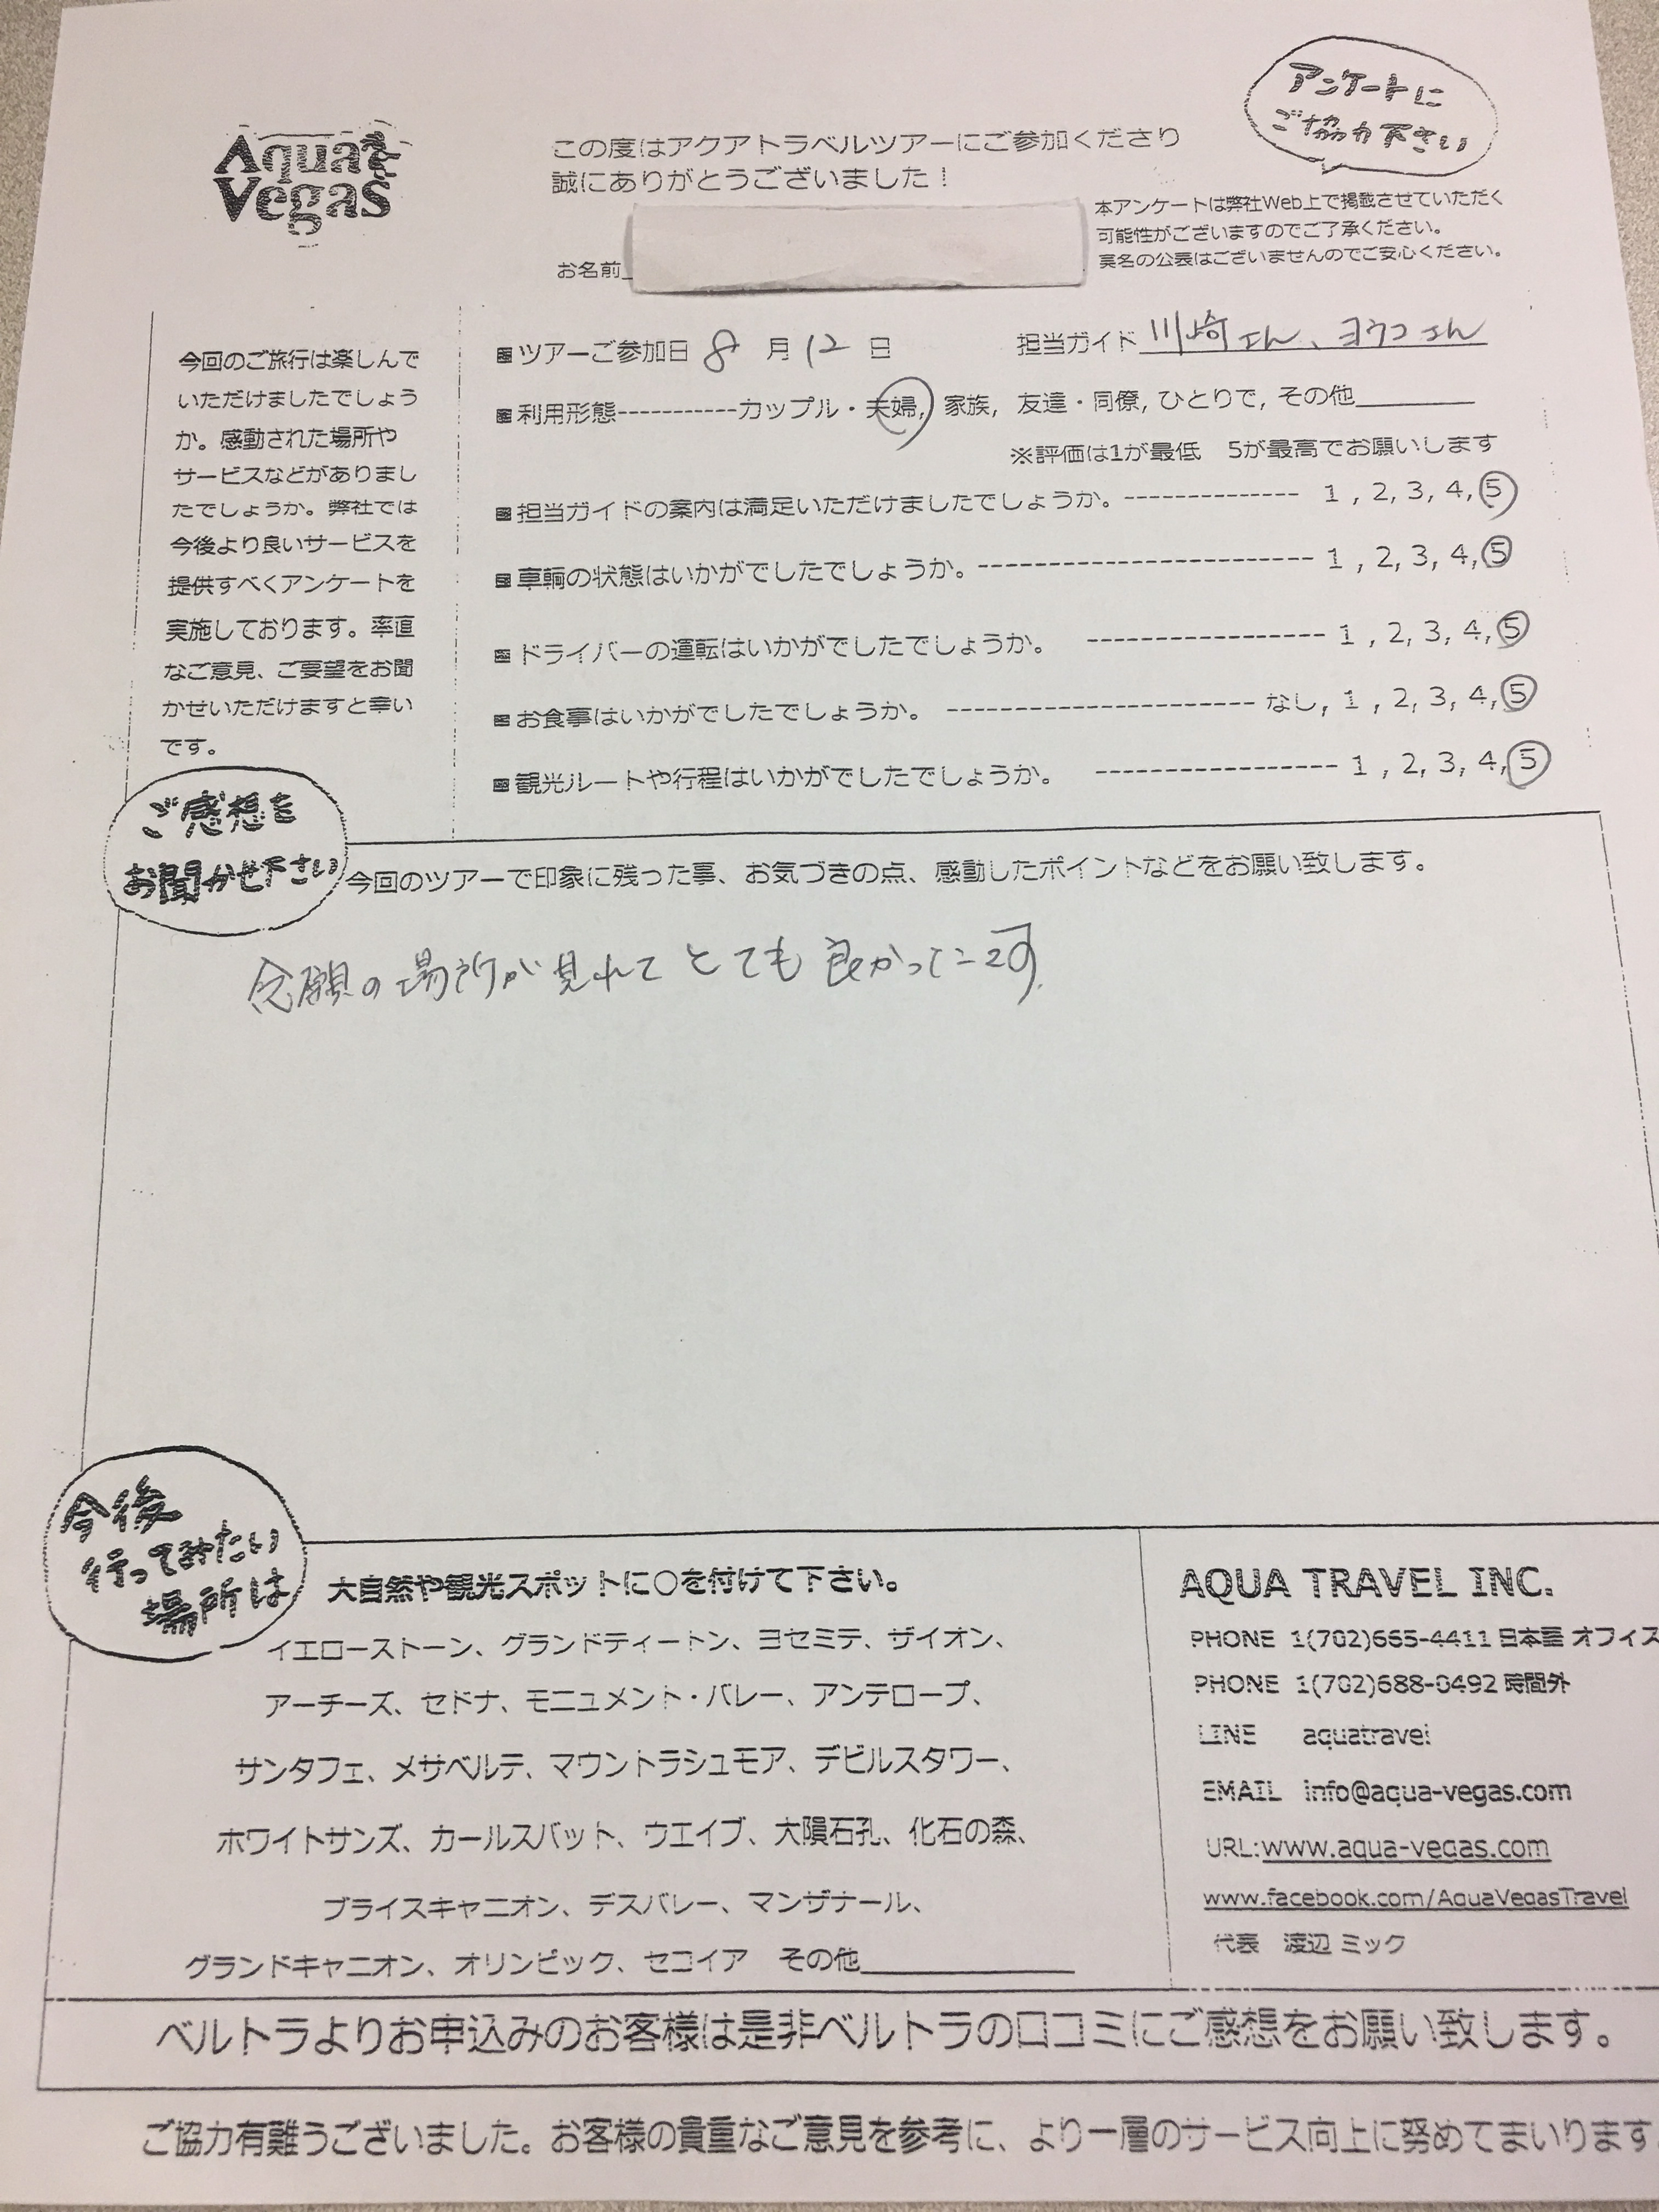 アンケートに
ご協力下さい
Aqua
Vegas
この度はアクアトラベルツアーにご参加くださり
誠にありがとうございました！
本アンケートは弊社Web上で掲載させていただく
可能性がございますのでご了承ください。
実名の公表はございませんのでご安心ください。
お名前
今回のご旅行は楽しんで
いただけましたでしょう
か。感動された場所や
サービスなどがありまし
たでしょうか。弊社では
今後より良いサービスを
提供すべくアンケートを
実施しております。率直
なご意見、ご要望をお聞
かせいただけますと幸い
です。
■ツアーご参加日 8 月 12 日 担当ガイド 川崎さん、ヨウコさん
■利用形態-----------カップル・夫婦, 家族, 友達・同僚, ひとりで, その他
※評価は1が最低 5が最高でお願いします
■担当ガイドの案内は満足いただけましたでしょうか。-------------- 1 , 2, 3, 4, 5
■車輌の状態はいかがでしたでしょうか。----------------------- 1 , 2, 3, 4, 5
■ドライバーの運転はいかがでしたでしょうか。 ----------------- 1 , 2, 3, 4, 5
■お食事はいかがでしたでしょうか。 ---------------------- なし, 1 , 2, 3, 4, 5
■観光ルートや行程はいかがでしたでしょうか。 ----------------- 1 , 2, 3, 4, 5
ご感想を
お聞かせ下さい
今回のツアーで印象に残った事、お気づきの点、感動したポイントなどをお願い致します。
念願の場所が見れてとても良かったです.
今後
行ってみたい
場所は
大自然や観光スポットに○を付けて下さい。
イエローストーン、グランドティートン、ヨセミテ、ザイオン、
アーチーズ、セドナ、モニュメント・バレー、アンテロープ、
サンタフェ、メサベルテ、マウントラシュモア、デビルスタワー、
ホワイトサンズ、カールスバット、ウエイブ、大隕石孔、化石の森、
ブライスキャニオン、デスバレー、マンザナール、
グランドキャニオン、オリンピック、セコイア その他
AQUA TRAVEL INC.
PHONE 1(702)665-4411 日本語 オフィス
PHONE 1(702)688-0492 時間外
LINE aquatravel
EMAIL info@aqua-vegas.com
URL:www.aqua-vegas.com
www.facebook.com/AquaVegasTravel
代表 渡辺 ミック
ベルトラよりお申込みのお客様は是非ベルトラの口コミにご感想をお願い致します。
ご協力有難うございました。お客様の貴重なご意見を参考に、より一層のサービス向上に努めてまいります